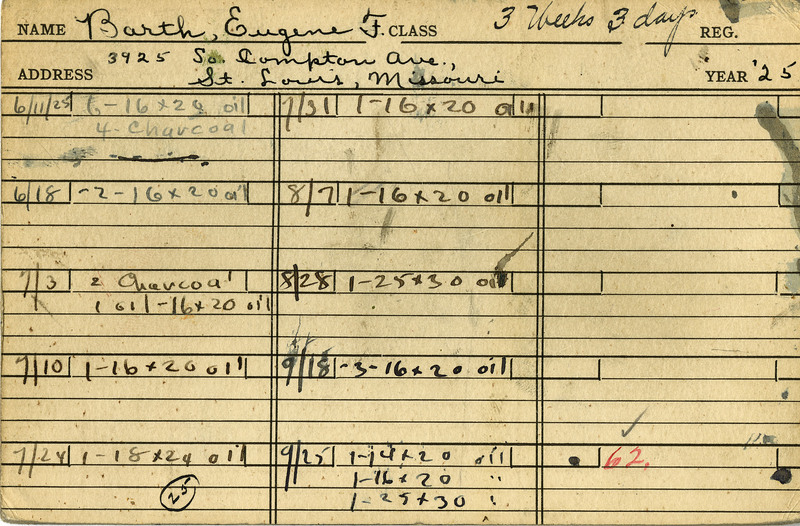 NAME Barth, Eugene F. CLASS 3 Weeks 3 days REG.
ADDRESS 3925 So. Compton Ave.,
St. Louis, Missouri YEAR '25
6/11/25 6-16x20 oil
4-Charcoal
6/18 -2-16x20 oil
7/3 2 Charcoal
1 oil-16x20 oil
7/10 1-16x20 oil
7/24 1-18x24 oil
25
7/31 1-16x20 oil
8/7 1-16x20 oil
8/28 1-25x30 oil
9/18 -3-16x20 oil
9/25 1-14x20 oil
1-16x20 "
1-25x30 "
62.